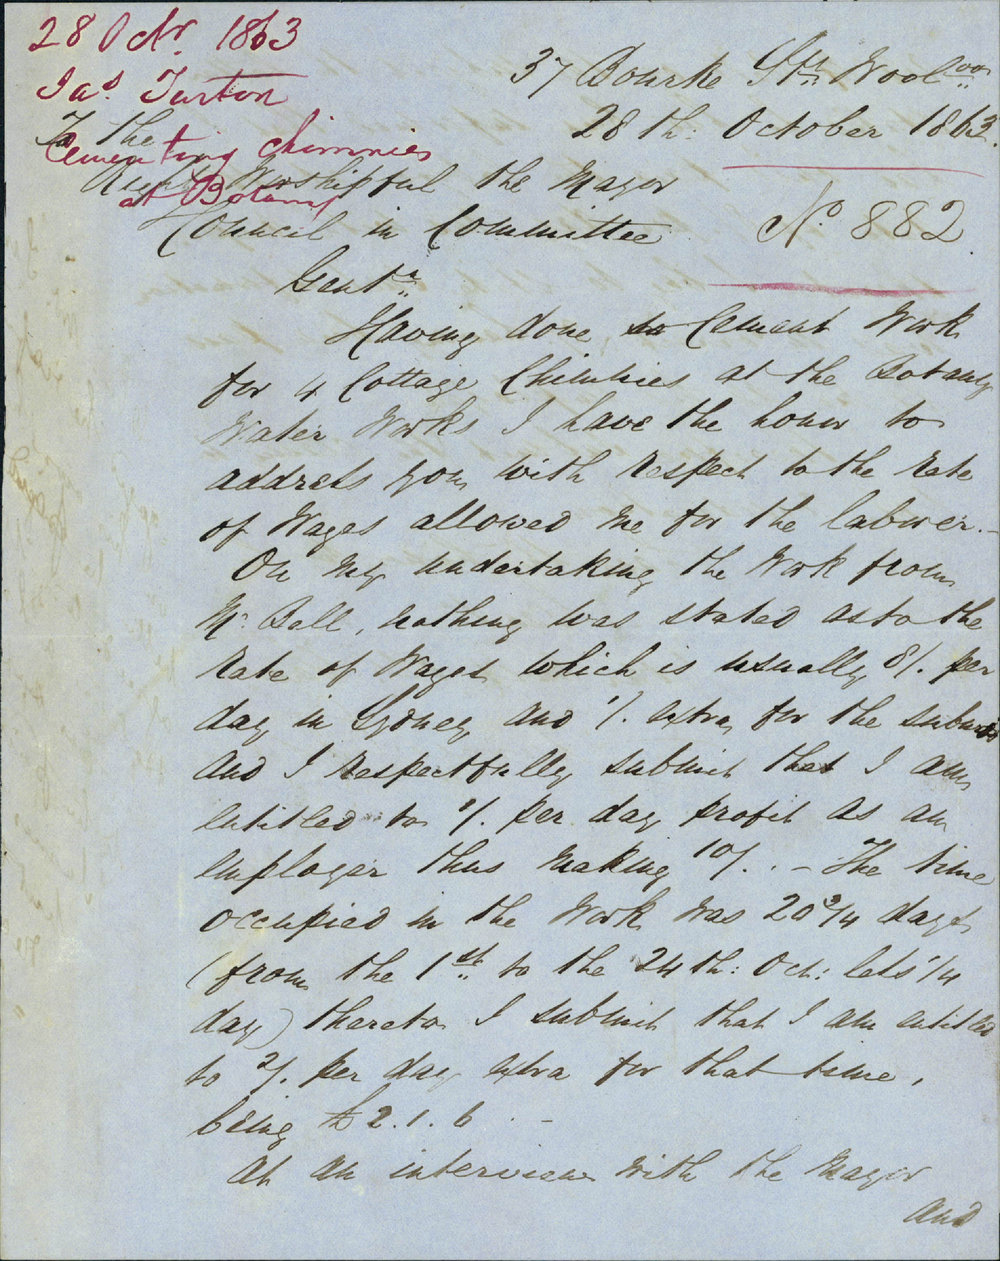 28 Octr. 1863
Jas. Turton
Cementing chimnies
at Botany
37 Bourke Str. Wooloo
28th: October 1863.
No. 882
To the
Right Worshipful the Mayor
Council in Committee
Gentn.
Having done to Cement Work
for 4 Cottage Chimnies at the Botany
Water Works I have the honor to
address you with respect to the Rate
of Wages allowed me for the laborer. -
On my undertaking the Work from
Mr. Bell, nothing was stated as to the
Rate of Wages which is usually 8/. per
day in Sydney and 1/. extra for the suburbs
and I respectfully submit that I am
entitled to 1/. per day profit as an
employer thus making 10/. - The time
occupied in the Work was 20 3/4 days
(from the 1st to the 24th: Oct: less 1/4
day) thereto I submit that I am entitled
to 2/. per day extra for that time,
being £2.1.6. -
At an interview with the Mayor
and